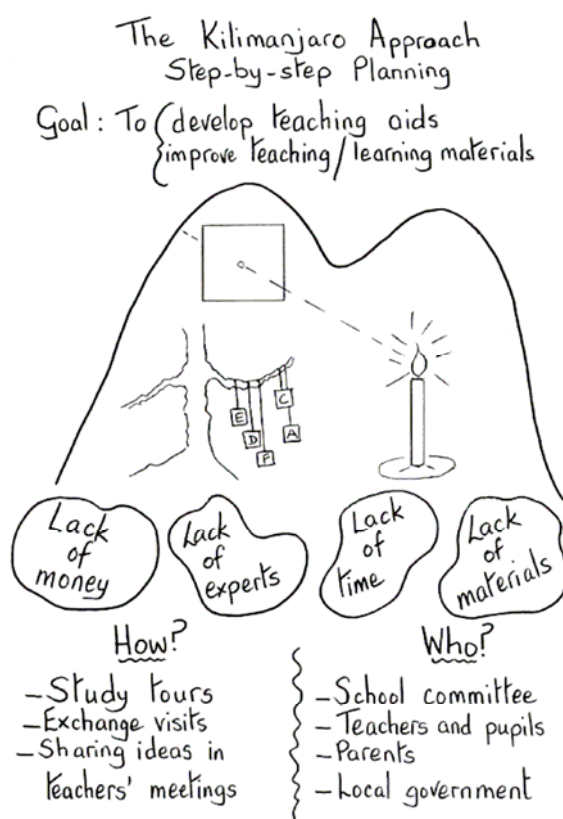 The Kilimanjaro Approach
Step-by-step Planning
Goal: To { develop teaching aids
improve teaching/learning materials
E
D
F
C
A
Lack
of
money
Lack
of
experts
Lack
of
time
Lack
of
materials
How?
– Study tours
– Exchange visits
– Sharing ideas in
teachers' meetings
Who?
– School committee
– Teachers and pupils
– Parents
– Local government